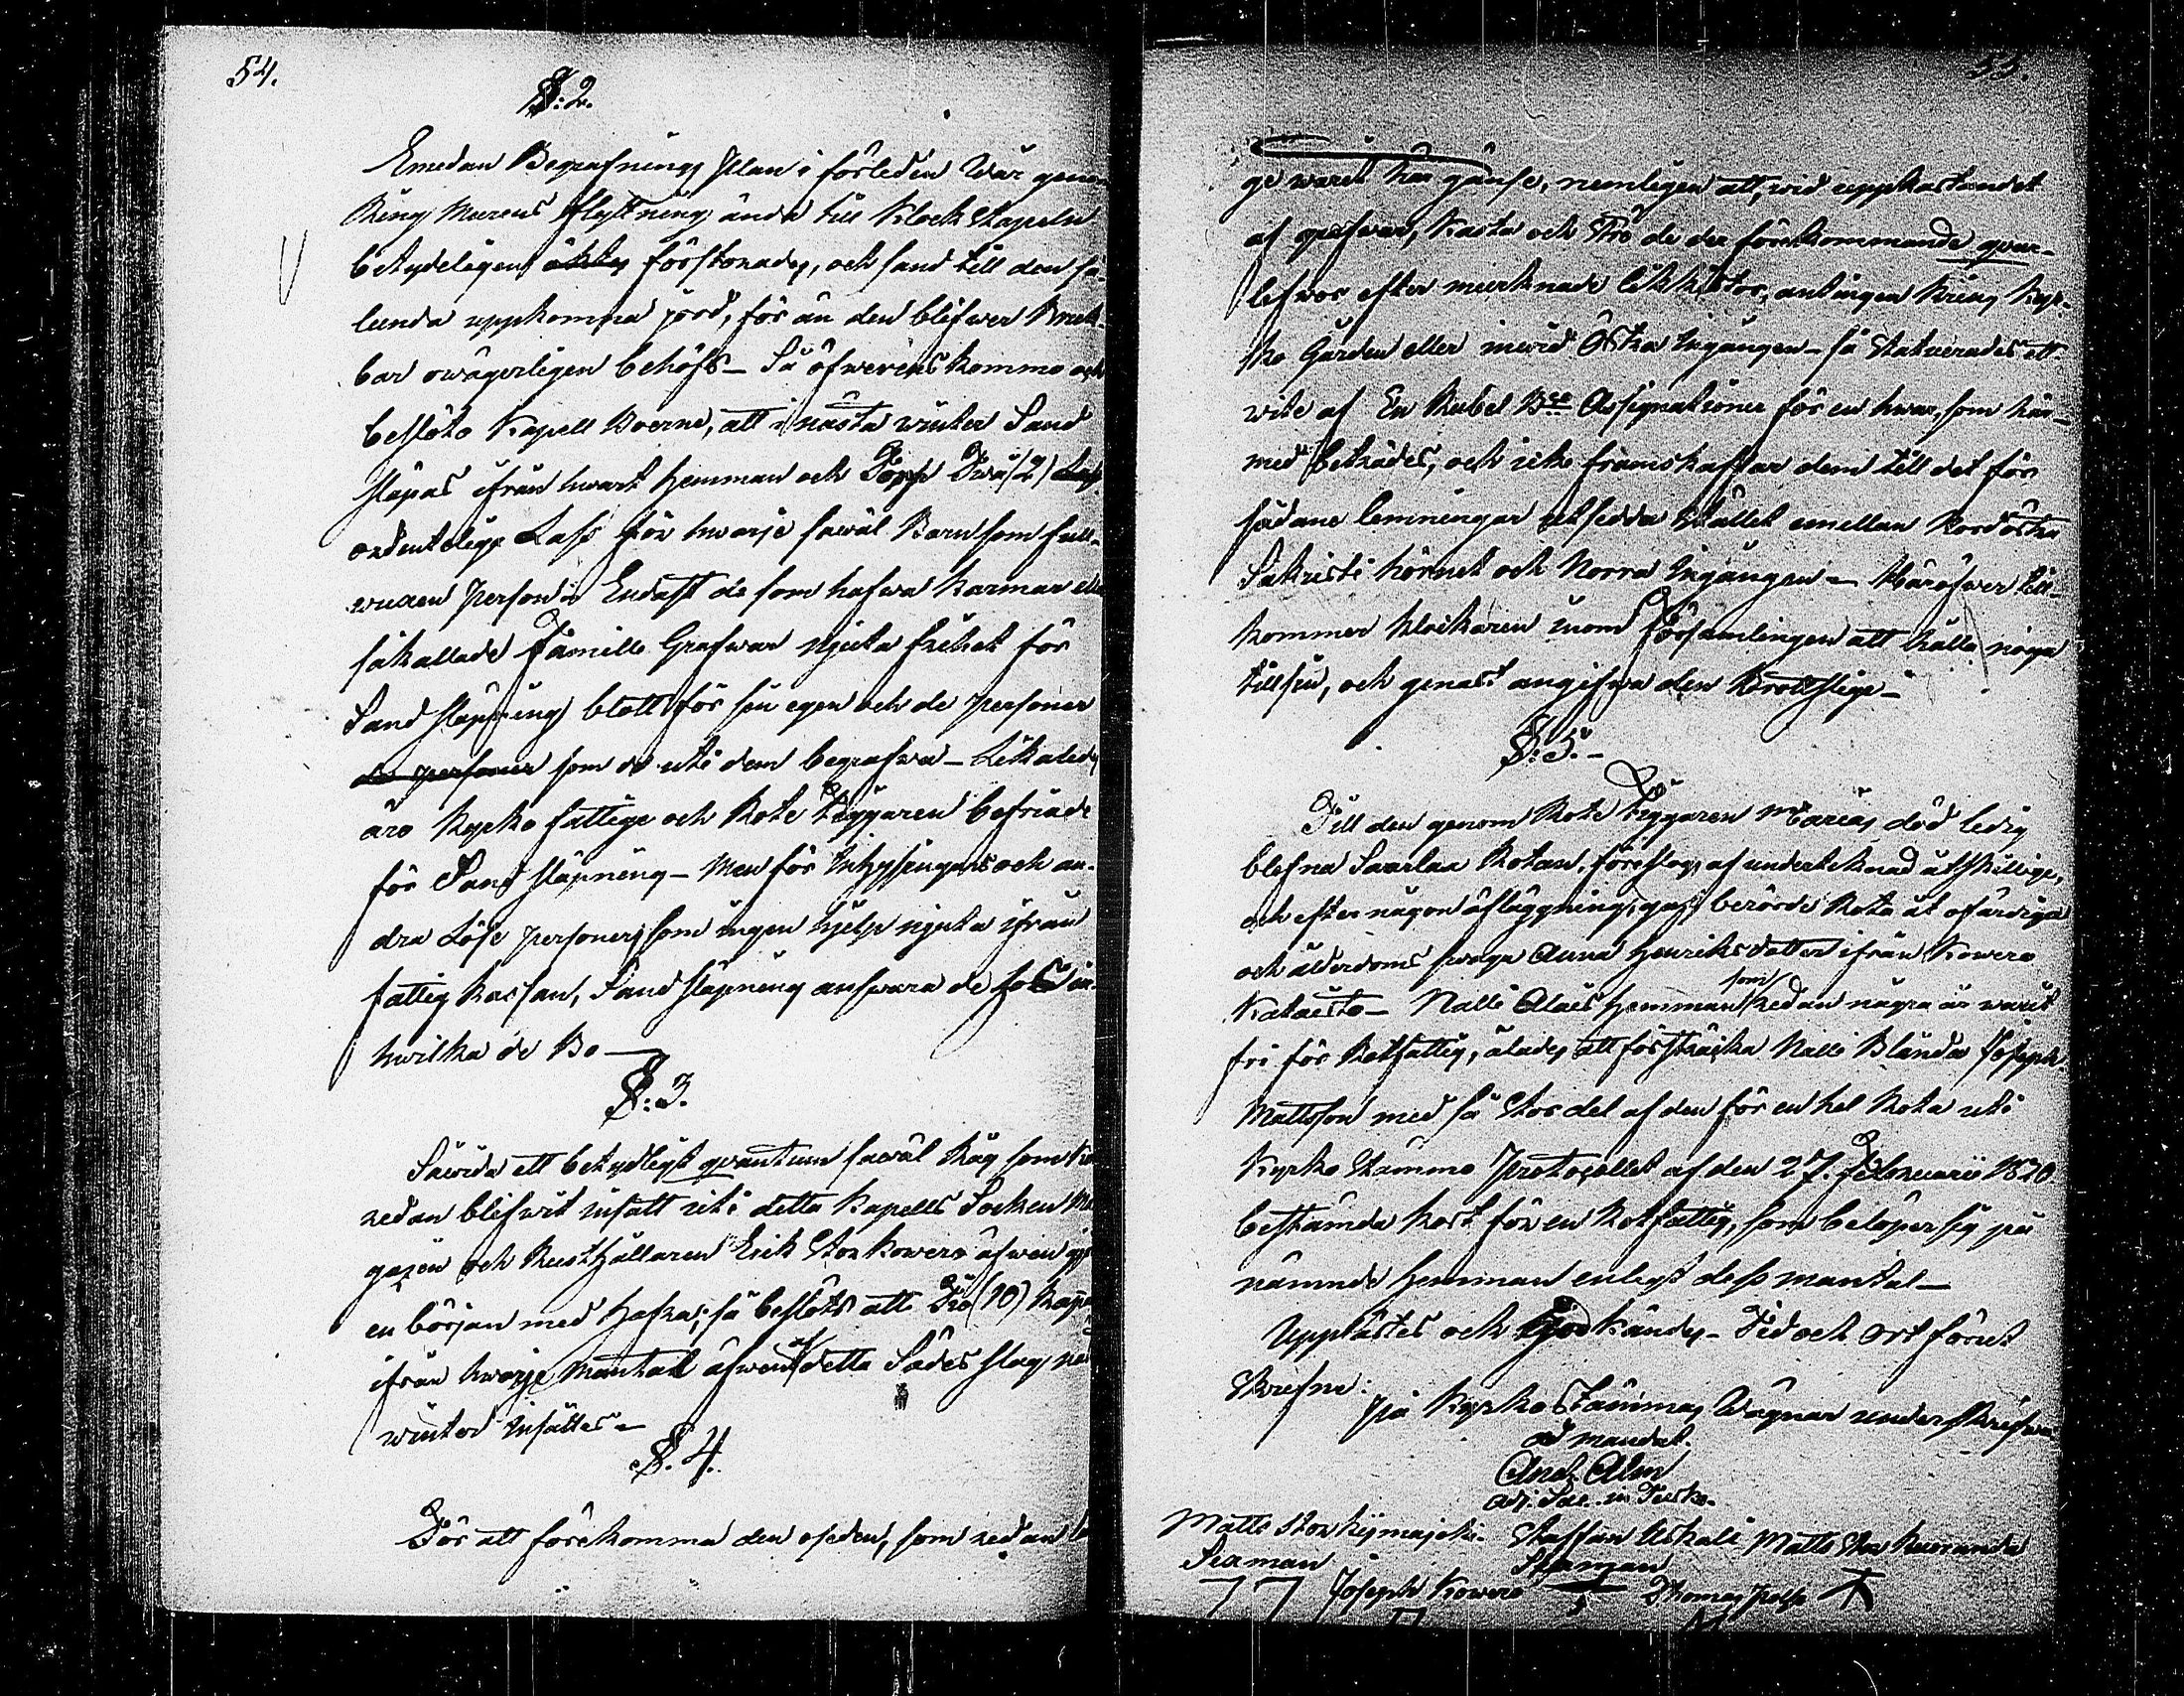 54.
§:2.
Emedan Begrafnings Plan i förleden Wår genom
Ring Murens flyttning ända till Klock Stapeln
betydeligen förstorades, och sand till den så-
lunda uppkomna jord, för än den blifwer Bruk-
bar owägerligen behöfs – Så öfverens kommo och
beslöto Kapell Boerne, att i nästa winter Sand
släpas ifrån hwart Hemman och Torp Två (2)
ordentelige Lass för hwarje såwäl Barn som full-
wuxen person – Endast de som hafwa Karmar eller
såkallade Famille Grafwar njuta frihet för
Sand släpning blott för sin egen och de personer
de personer som de uti dem begrafwa – Likaledes
äro Kyrko fattige och Rote Tiggaren befriade
för Sand släpning – Men för Inhysingars och an-
dra Löse personer, som ingen hjelp njuta ifrån
fattig kassan, Sand släpning answara de hos
hwilka de Bo –
§:3.
Såwida ett betydligt quantum såwäl Råg som
redan blifwit insatt uti detta Kapells Socken Ma
gazin och Rusthållaren Erik Storkowero äfwen
en början med Hafra; så beslöts att Tio (10) Kappar
ifrån hwarje Mantal äfwen af detta Sädes slag,
winter insättes –
§.4.
För att förekomma den oseden, som redan
55.
ge warit här gänse, nemligen att, wid uppkastandet
af grafwar, Kasta och Strö de der förekommande quar-
lefwor efter murknade likkistor, antingen kring Kyr-
ko Gården eller inwid Östra Ingången – så Statuerades ett
wite af En Rubel Bco Assignationer för en hwar, som här-
med beträdes, och icke framskaffar dem till det för
sådane lemningar utsedda Stället emellan Nordöstra
Sakristi hörnet och Norra Ingången – Häröfwer till-
kommer klockaren inom Församlingen att hålla noga
tillsin, och genast angifwa den Brottslige –
§:5.–
Till den genom Rote Tiggaren Marias död ledig
blefna Saarlaa Rotan, föreslogs af underteknad åtskillige,
och efter någon öfläggning, gafs berörde Rota åt ofärdiga
och ålderdoms swaga Anna Henriksdotter ifrån Kowero
Kataisto – Nalli Alais Hemman som redan några år warit
fri för Rotfattig, ålades att försträcka Nalli Blinda Joseph
Mattsson med så Stor del af den för en hel Rota uti
Kyrko Stämmo Protocollet af den 27. Februarii 1820
bestämda kost för en Rotfattig, som belöper sig på
nämnde Hemman enligt dess mantal –
Upplästes och Godkändes – Tid och Ort förut
Skrefne:
På Kyrko Stämmas Wägnar underskrifwa
ad mandat.
And. Alm
adj. Sac. in
Matts Storkijmajoki. Staffan Uskali Matts Stor
Sexman Sexman
Joseph Kowero Thomas